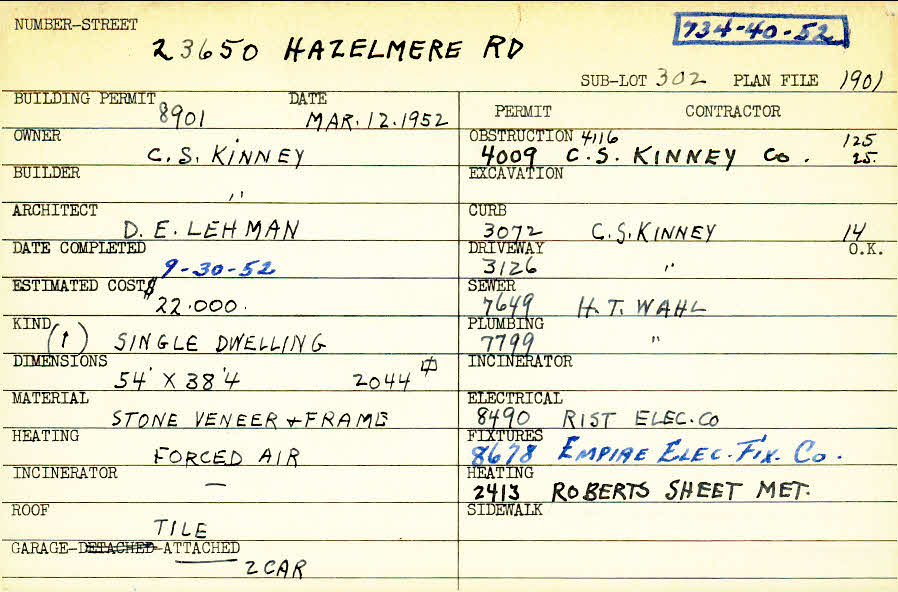 NUMBER-STREET
23650 HAZELMERE RD
734-40-52
SUB-LOT 302 PLAN FILE 1901
BUILDING PERMIT 8901 DATE MAR. 12. 1952
OWNER
C. S. KINNEY
BUILDER
''
ARCHITECT
D. E. LEHMAN
DATE COMPLETED
9-30-52
ESTIMATED COST $
22.000.
KIND
(1) SINGLE DWELLING
DIMENSIONS
54' X 38'4 2044
MATERIAL
STONE VENEER + FRAME
HEATING
FORCED AIR
INCINERATOR
—
ROOF
TILE
GARAGE-DETACHED-ATTACHED
2 CAR
PERMIT CONTRACTOR
OBSTRUCTION 4116 125
4009 C.S. KINNEY Co. 25.
EXCAVATION
CURB
3072 C.S. KINNEY 14
DRIVEWAY O.K.
3126 "
SEWER
7649 H.T. WAHL
PLUMBING
7799 "
INCINERATOR
ELECTRICAL
8490 RIST ELEC. CO
FIXTURES
8678 EMPIRE ELEC. FIX. CO.
HEATING
2413 ROBERTS SHEET MET.
SIDEWALK